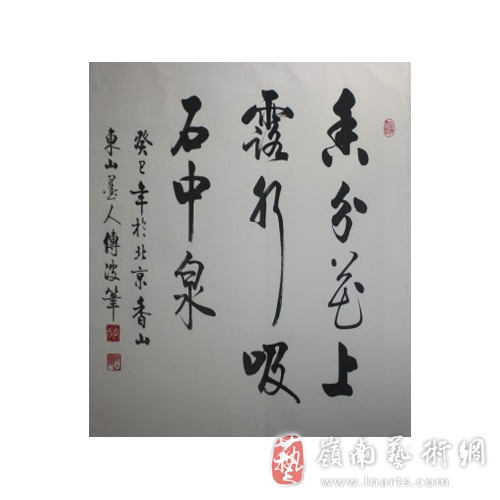 香分花上
露水吸
石中泉
癸巳年於北京香山
東山墨人傅波筆
藝 嶺南藝術網
www.lnarts.com